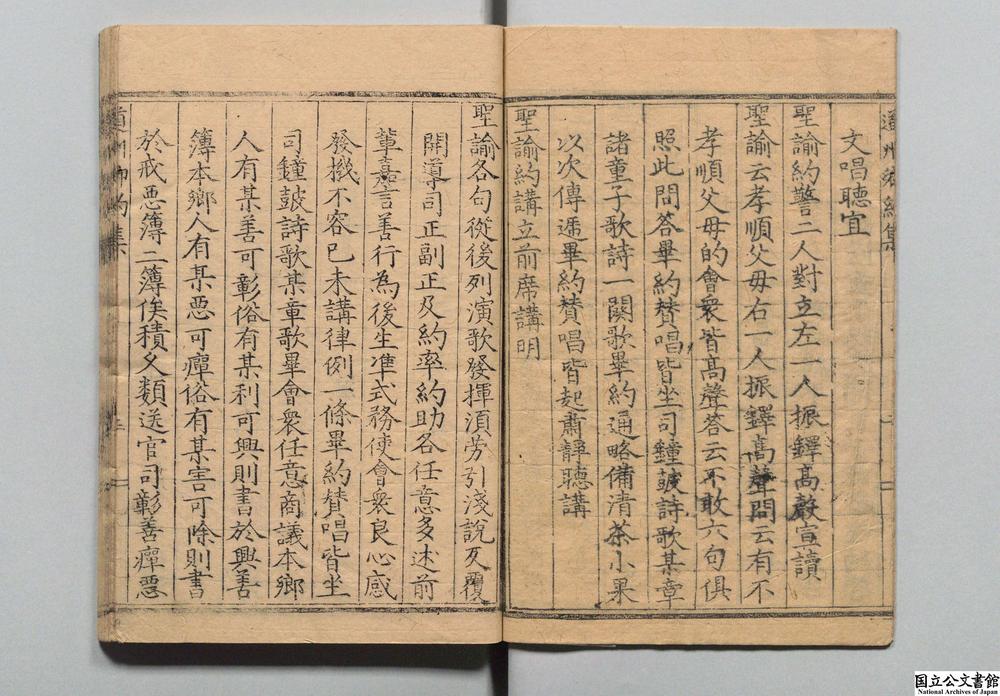 文唱聽宣
聖諭約警二人對立左一人振鐸高聲宣讀
聖諭云孝順父母右一人振鐸高聲問云有不
孝順父母的會衆皆高聲答云不敢六句俱
照此問答畢約贊唱皆坐司鐘皷詩歌某章
諸童子歌詩一闋歌畢約通略備清茶小果
以次傳遞畢約贊唱皆起肅靜聽講
聖諭約講立前席講明
聖諭各句從後列演歌發揮須旁引淺說反覆
開導司正副正及約率約助各任意多述前
輩嘉言善行為後生準式務使會衆良心感
發撥不容已未講律例一條畢約贊唱皆坐
司鐘皷詩歌某章歌畢會衆任意商議本鄉
人有某善可彰俗有某利可興則書於興善
簿本鄉人有某惡可癉俗有某害可除則書
於戒惡簿二簿俟積久類送官司彰善癉惡
國立公文書館
National Archives of Japan